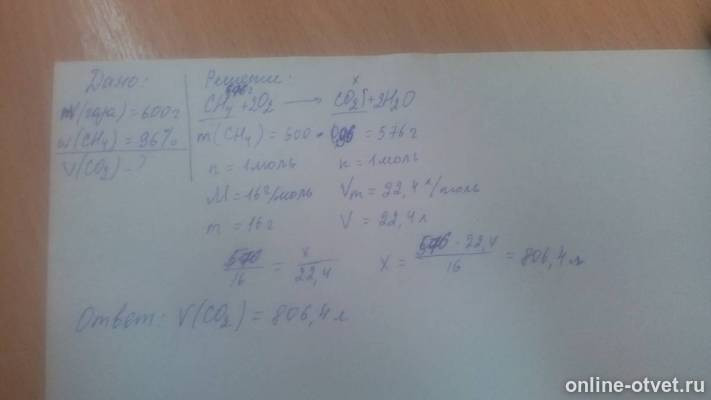 Дано:
m(газа) = 600г
w(CH₄) = 96%
V(CO₂) - ?
Решение:
576г x
CH₄ + 2O₂ → CO₂↑ + 2H₂O
m(CH₄) = 600 · 0,96 = 576г
n = 1моль n = 1моль
M = 16г/моль Vm = 22,4 л/моль
m = 16г V = 22,4л
576/16 = x/22,4 x = 576 · 22,4/16 = 806,4л
Ответ: V(CO₂) = 806,4л
online-otvet.ru